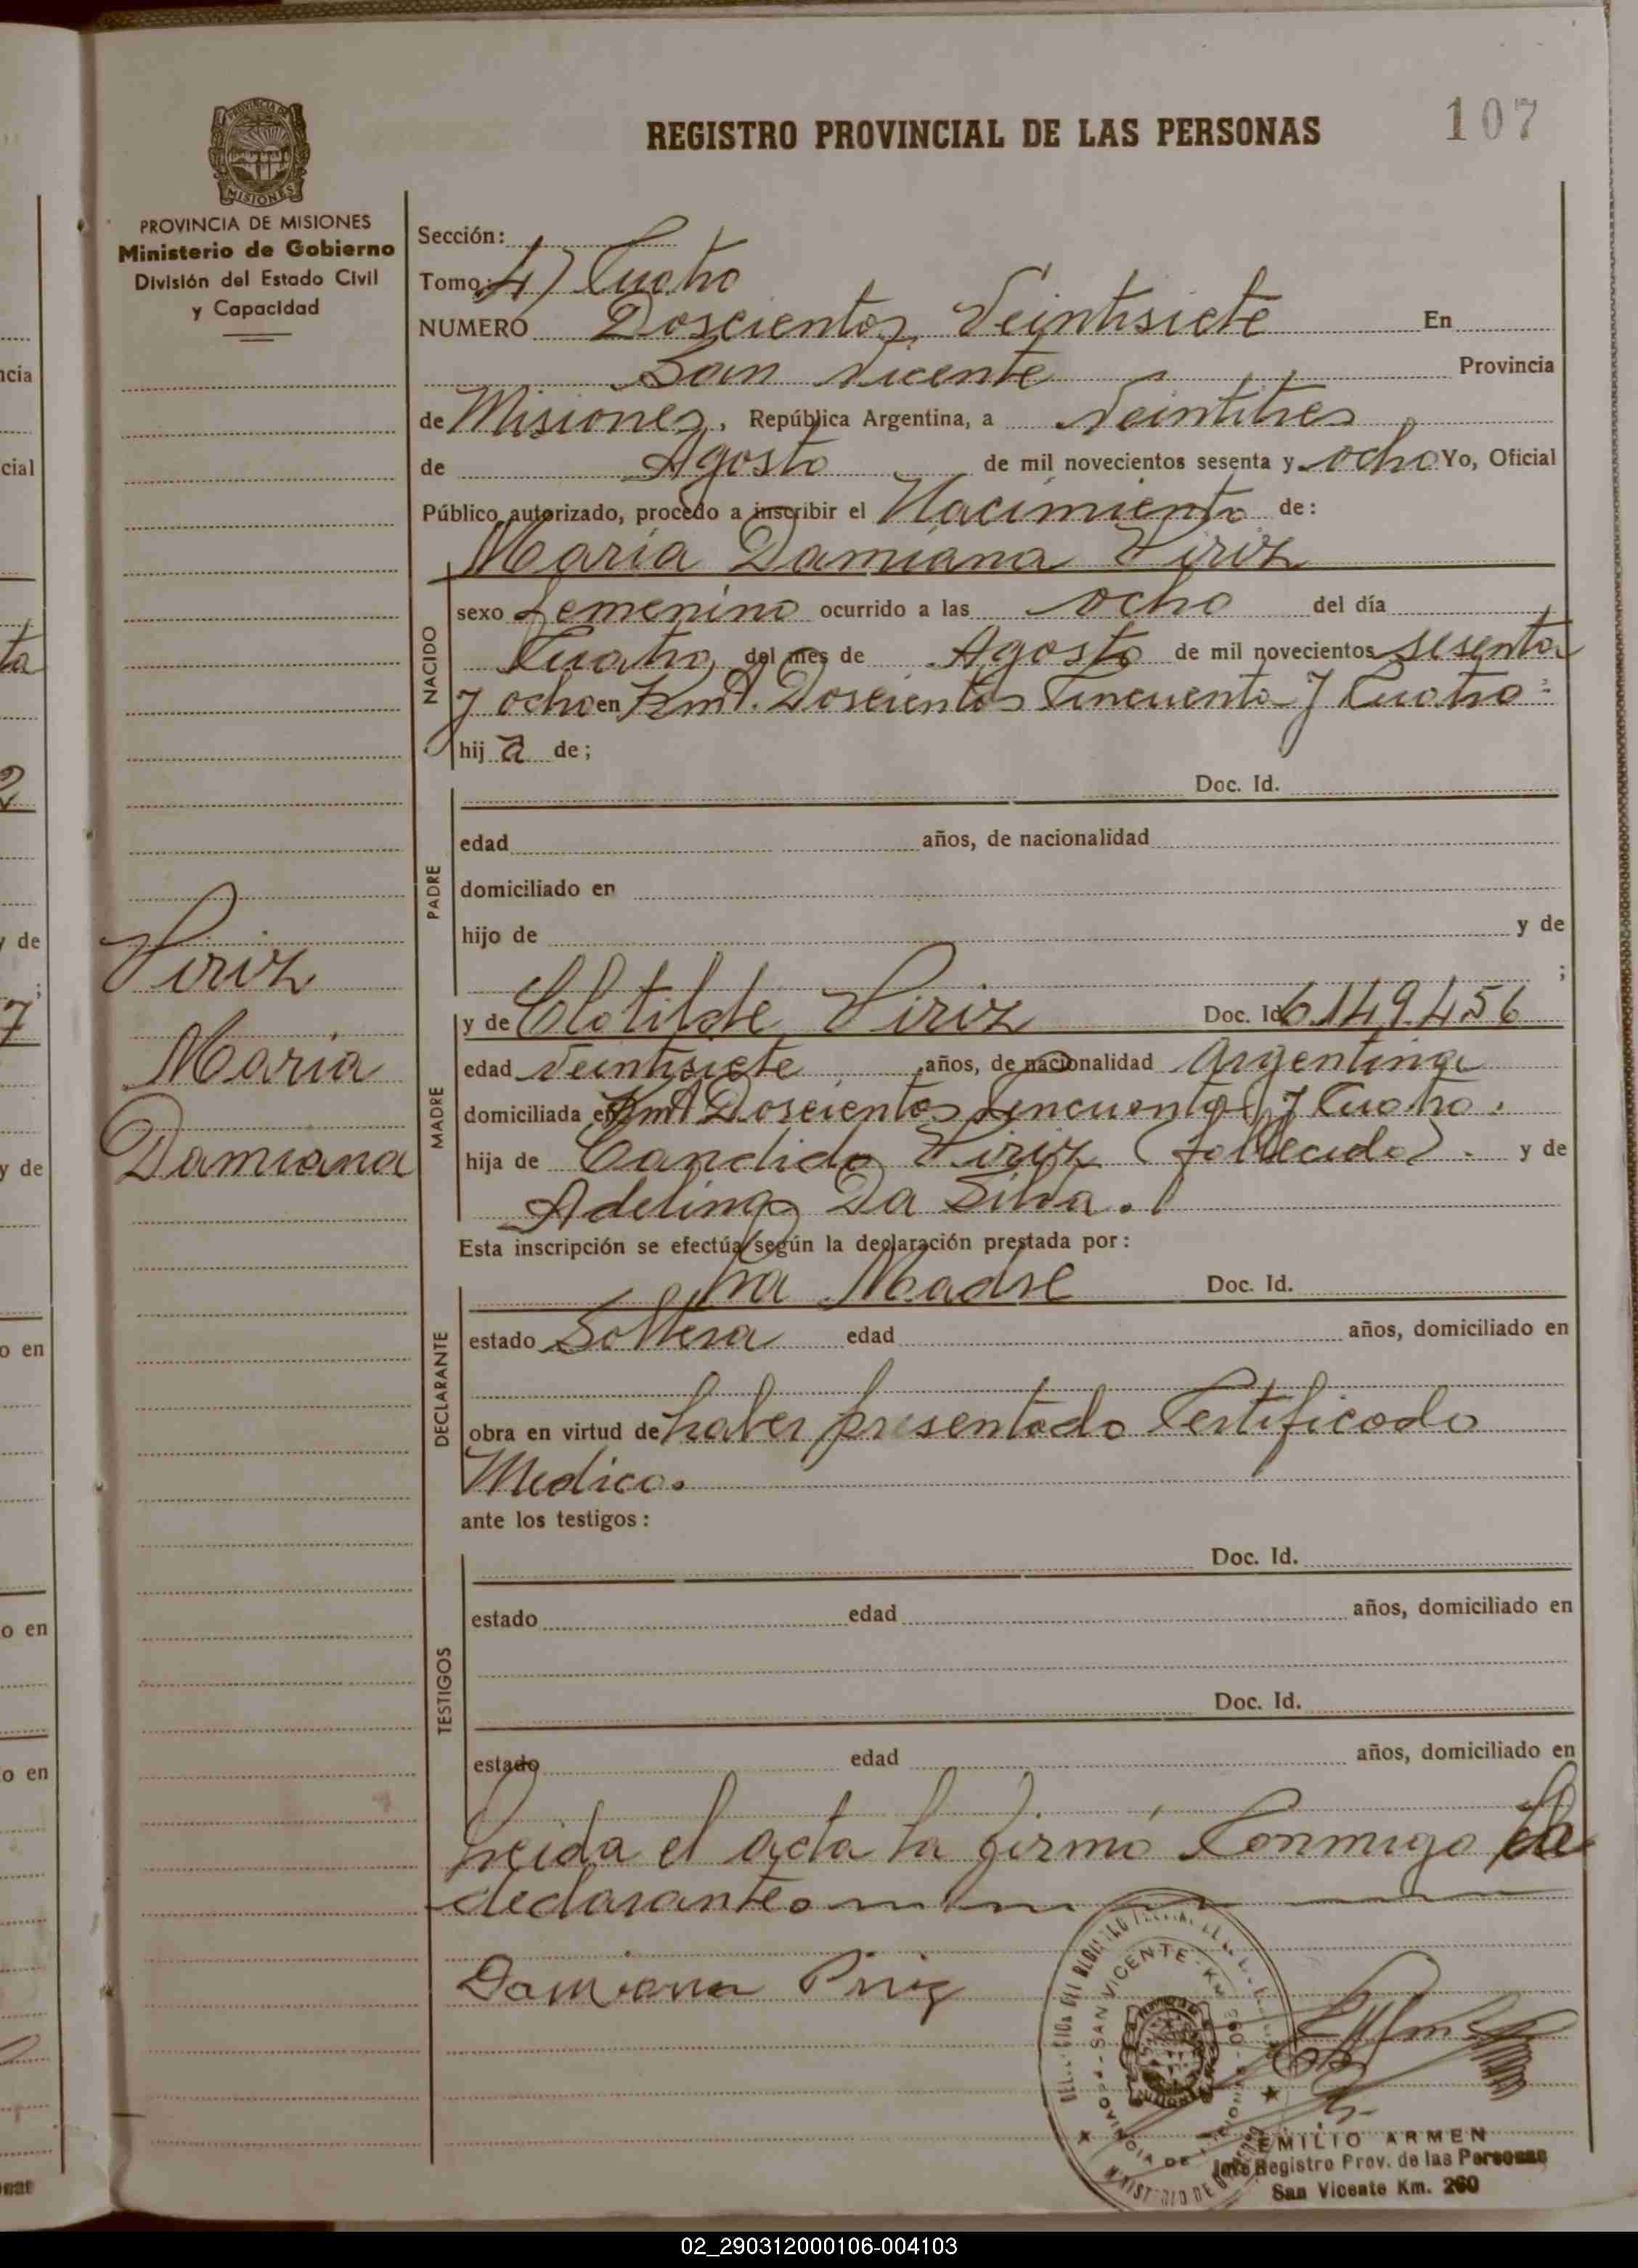 107
REGISTRO PROVINCIAL DE LAS PERSONAS
PROVINCIA DE MISIONES
Ministerio de Gobierno
División del Estado Civil
y Capacidad
Sección:
Tomo: 4) Cuatro
NUMERO Doscientos Veintisiete En
San Vicente Provincia
de Misiones, República Argentina, a Veintitres
de Agosto de mil novecientos sesenta y ocho Yo, Oficial
Público autorizado, procedo a inscribir el Nacimiento de:
Maria Damiana Piriz
NACIDO
sexo femenino ocurrido a las ocho del día
Cuatro del mes de Agosto de mil novecientos sesenta
y ocho en Kmt. Doscientos Cincuenta y Cuatro
hij a de;
PADRE
Doc. Id.
edad años, de nacionalidad
domiciliado en
hijo de y de
;
Piriz
Maria
Damiana
MADRE
y de Clotilde Piriz Doc. Id 6.149.456
edad Veintisiete años, de nacionalidad Argentina
domiciliada en Kmt Doscientos Cincuenta y Cuatro.
hija de Candido Piriz (fallecido). y de
Adelina Da Silva.
Esta inscripción se efectúa según la declaración prestada por:
DECLARANTE
La Madre Doc. Id.
estado Soltera edad años, domiciliado en
obra en virtud de haber presentado Certificado
Medico.
ante los testigos:
TESTIGOS
Doc. Id.
estado edad años, domiciliado en
Doc. Id.
estado edad años, domiciliado en
Leida el acta la firmó Conmigo la
declarante
Damiana Piriz
SAN VICENTE - Km 260
MINISTERIO DE GOBIERNO
EMILIO ARMEN
Jefe Registro Prov. de las Personas
San Vicente Km. 260
02_290312000106-004103